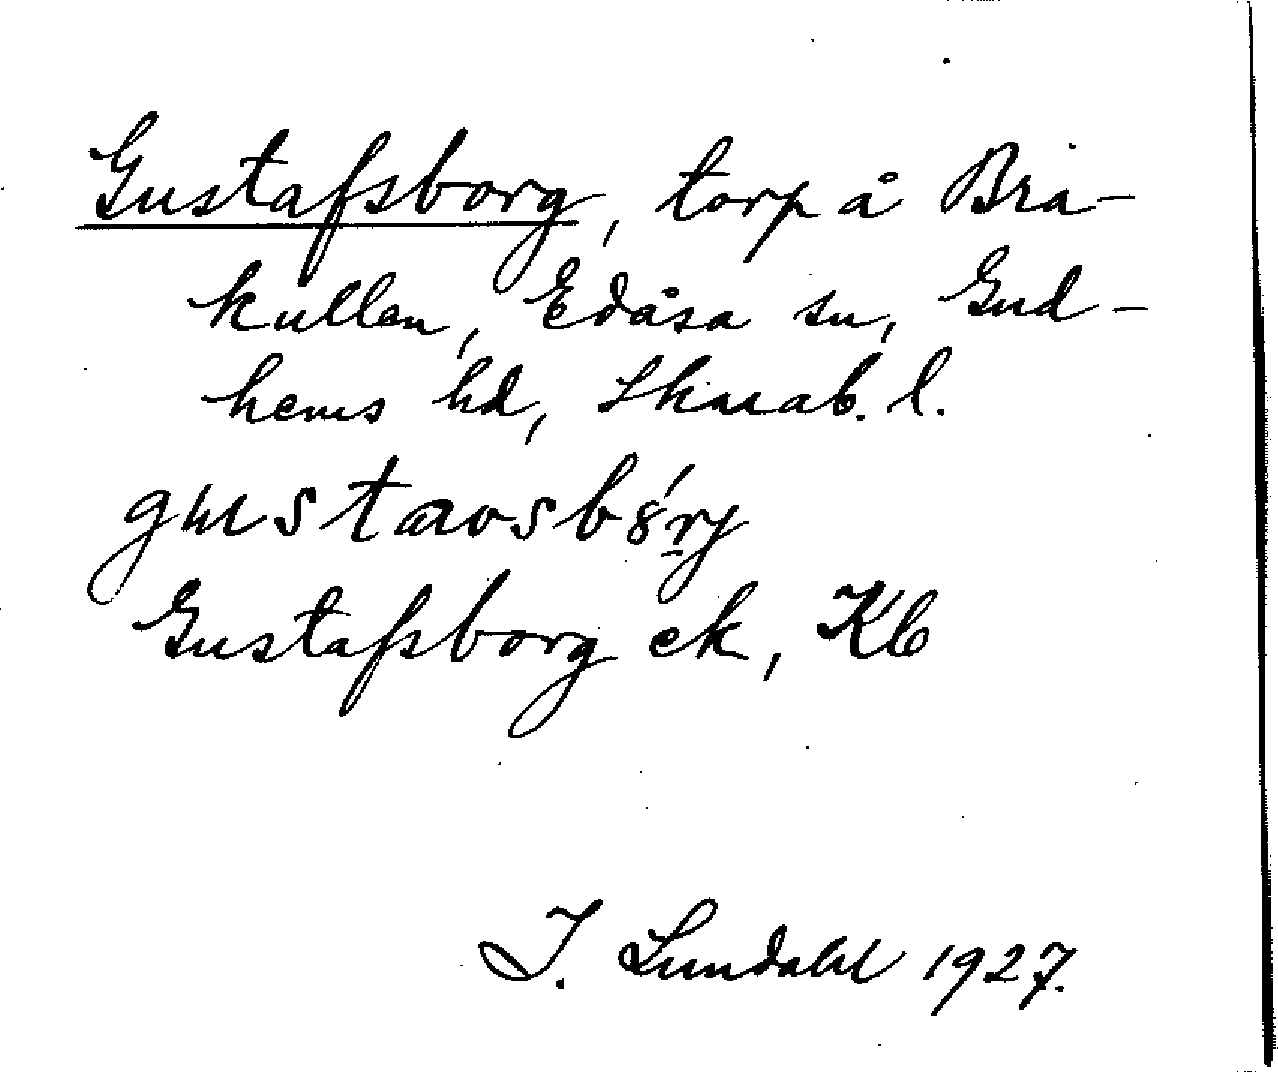 Gustafsborg, torp å Bra-
kullen, Edåsa sn, Gud-
hems hd, Skarab. l.
gustavsbórj
Gustafsborg ek, Kb
I. Lundahl 1927.